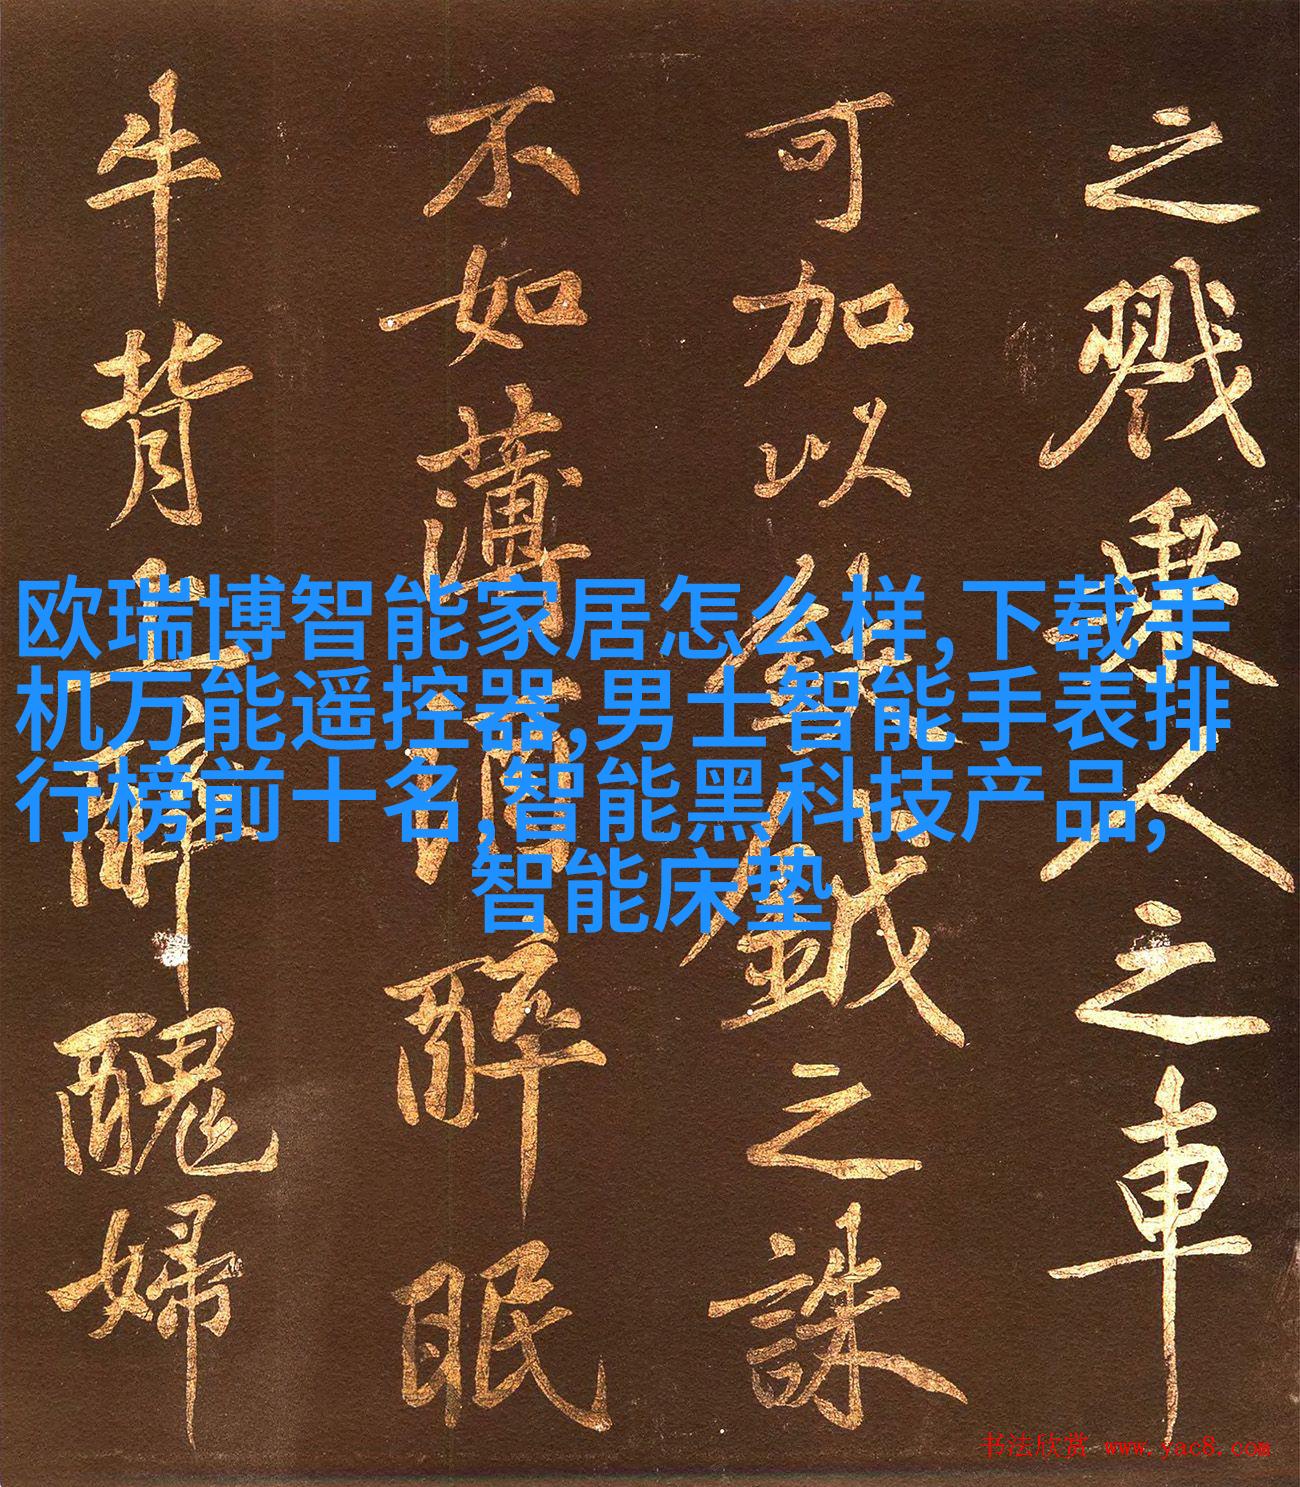 之戮乘人之車
可加以鈇鉞之誅
不如薄酒醉眠
牛背上醉醜婦
欧瑞博智能家居怎么样,下载手
机万能遥控器,男士智能手表排
行榜前十名,智能黑科技产品,
智能床垫
书法欣赏 www.yac8.com